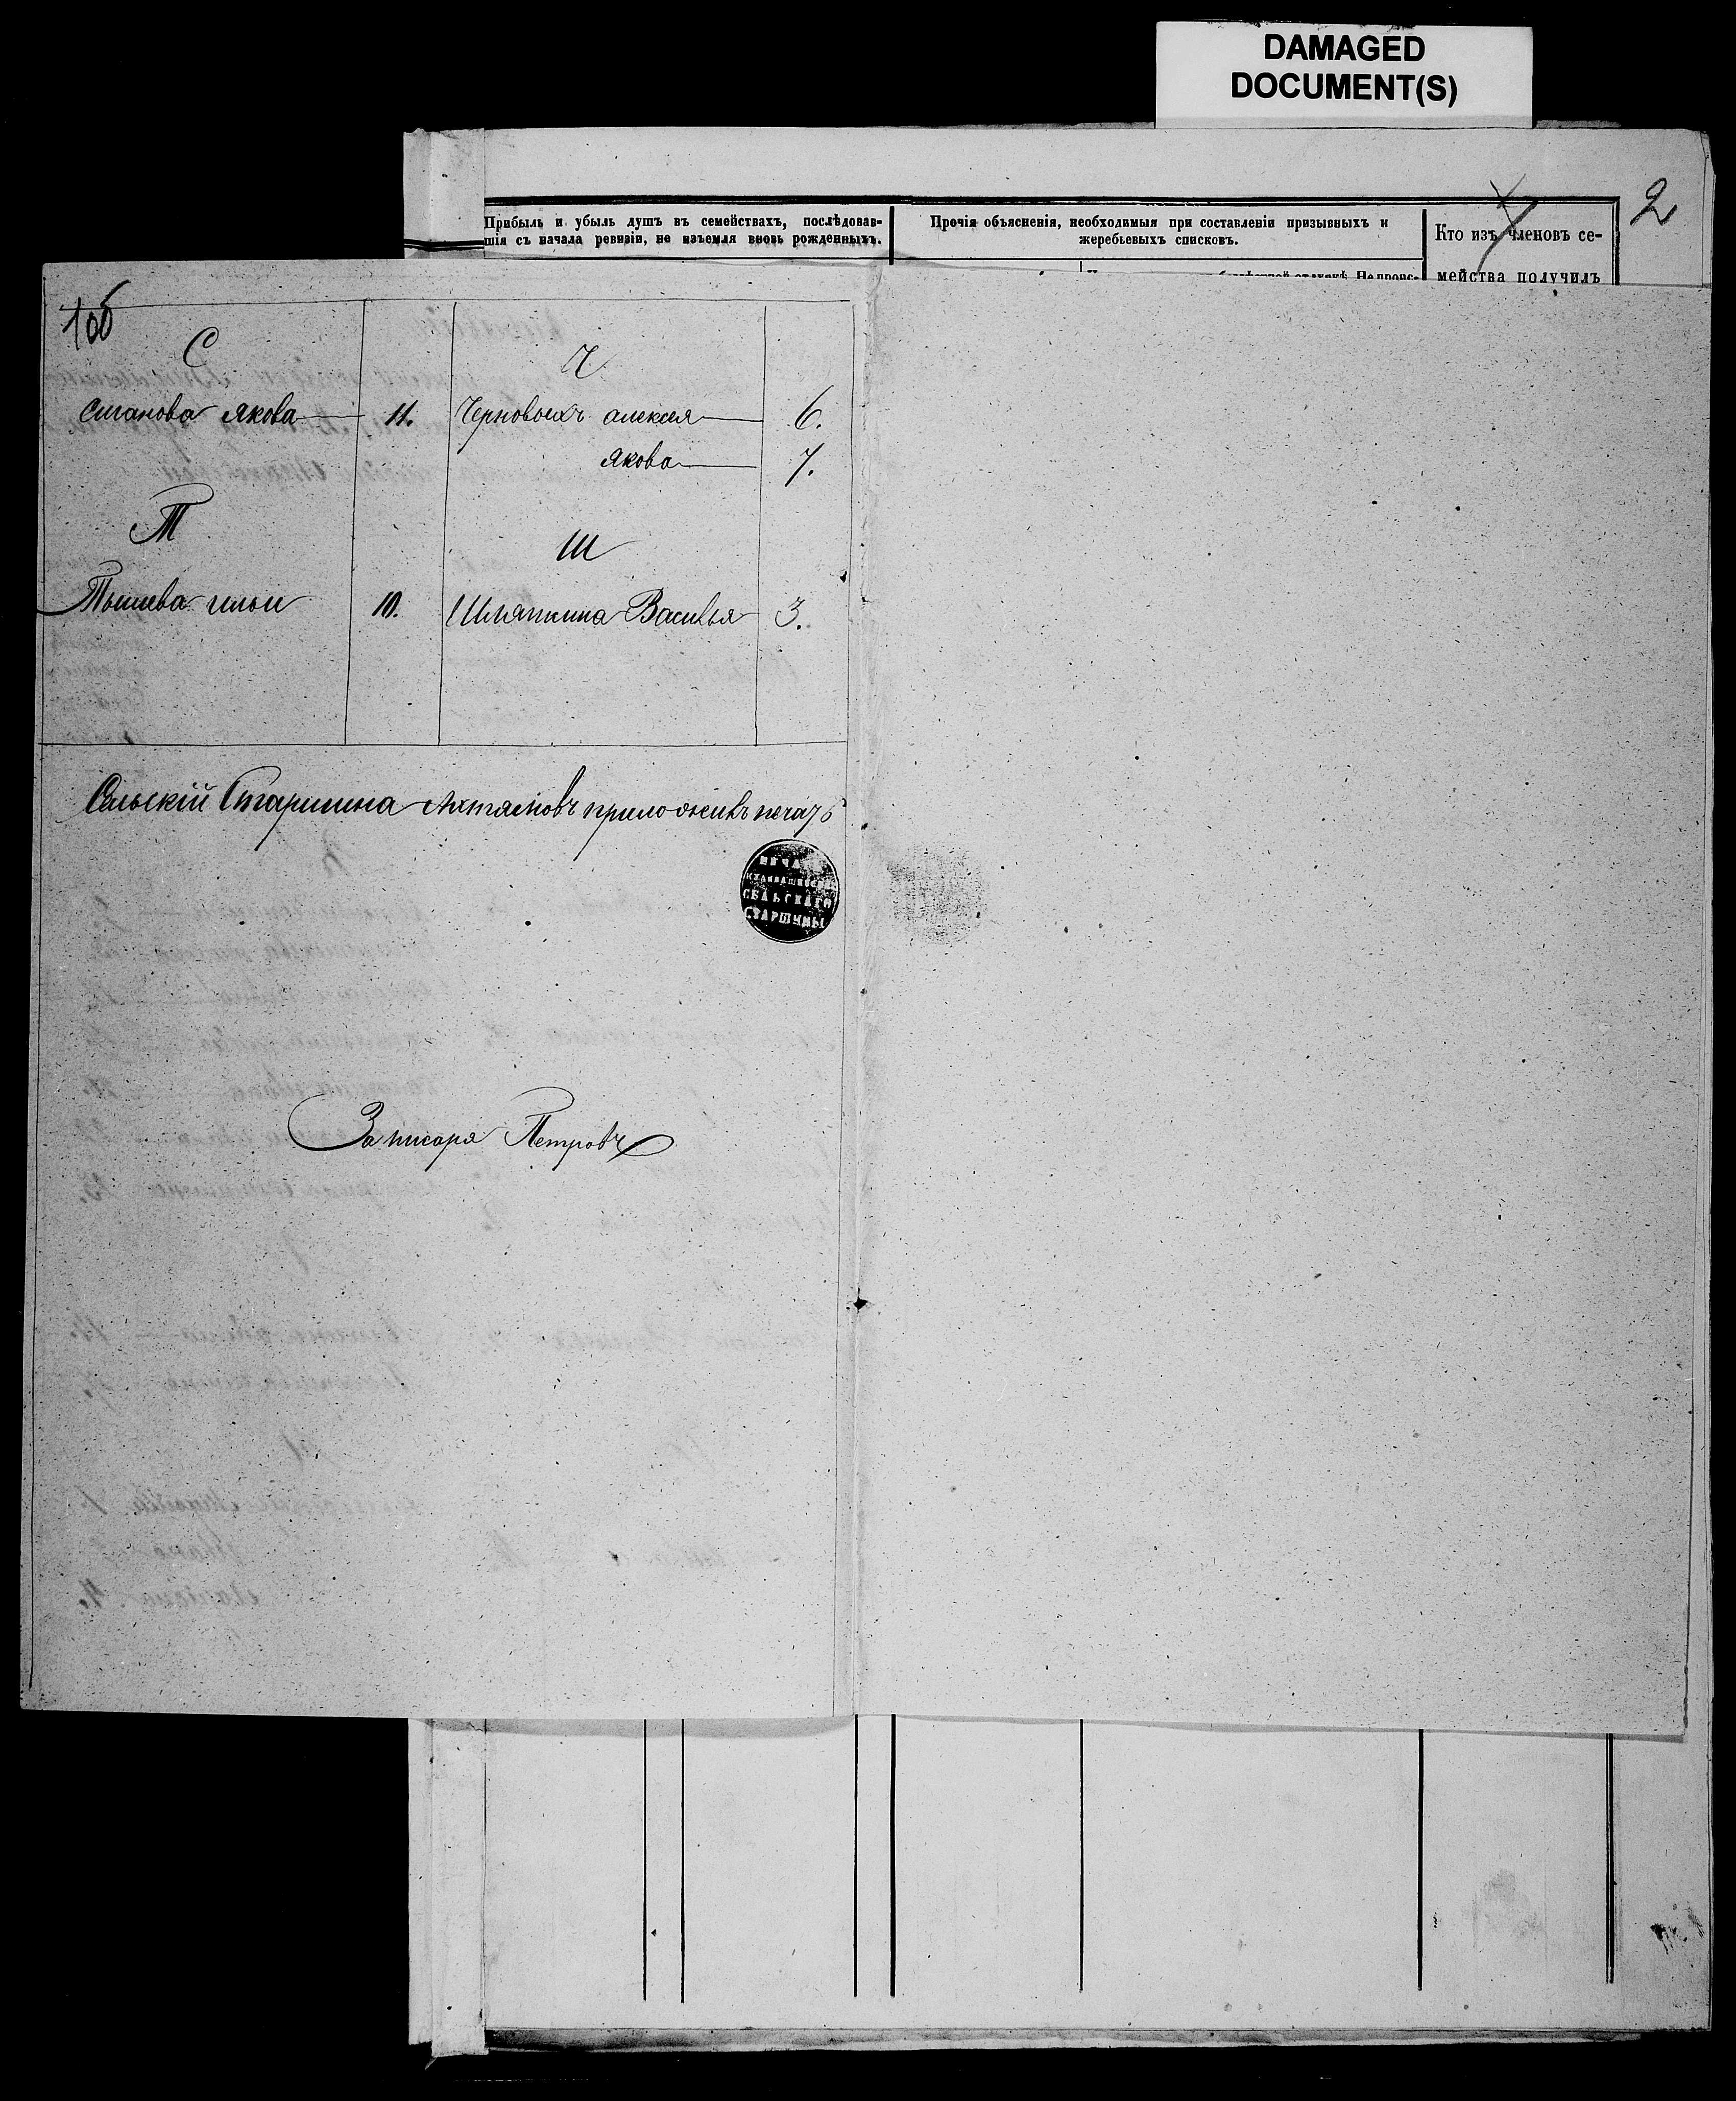 DAMAGED
DOCUMENT(S)
2
Прибыль и убыль душъ въ семействахъ, послѣдовав-
шія съ начала ревизіи, не изъемля вновь рожденныхъ.
Прочія объясненія, необходимыя при составленіи призывныхъ и
жеребьевыхъ списковъ.
Кто изъ членовъ се-
мейства получилъ
1об
С
Ч
Стапова Якова 11.
Черновыхъ Алексея 6.
Якова 7.
Т
Ш
Ильи 10.
Шляпкина Василья 3.
Сельскій Старшина Ахтямовъ приложилъ печать
ПЕЧА
СЕЛЬСКАГО
СТАРШИНЫ
За писаря Петровъ